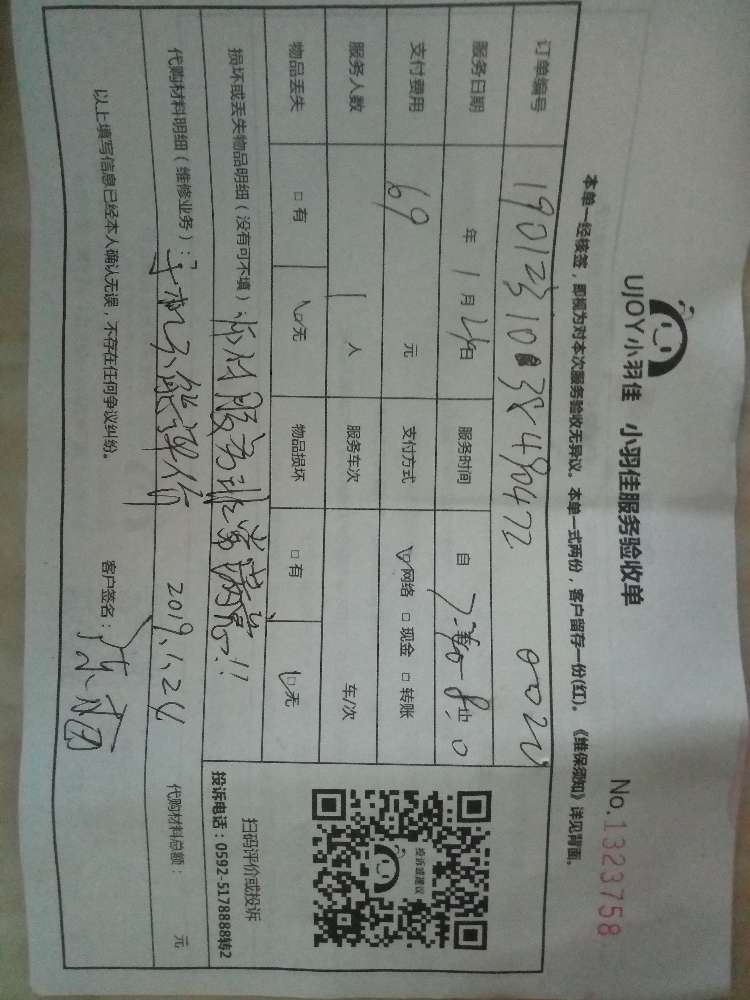 UJOY小羽佳 小羽佳服务验收单
No.1323758
本单一经核签，即视为对本次服务验收无异议。本单一式两份，客户留存一份(红)。《维保须知》详见背面。
订单编号
服务日期 年 1 月 24 日 服务时间 自 止
支付费用 69 元 支付方式 网络 □ 现金 □ 转账
服务人数 1 人 服务车次 车/次
物品丢失 □ 有 □ 无 物品损坏 □ 有 □ 无
损坏或丢失物品明细（没有可不填） 服务非常满意!!
代购材料明细（维修业务）：手机不能评价 2019.1.24 代购材料总额： 元
以上填写信息已经本人确认无误，不存在任何争议纠纷。 客户签名：
投诉或建议
扫码评价或投诉
投诉电话：0592-5178888转2